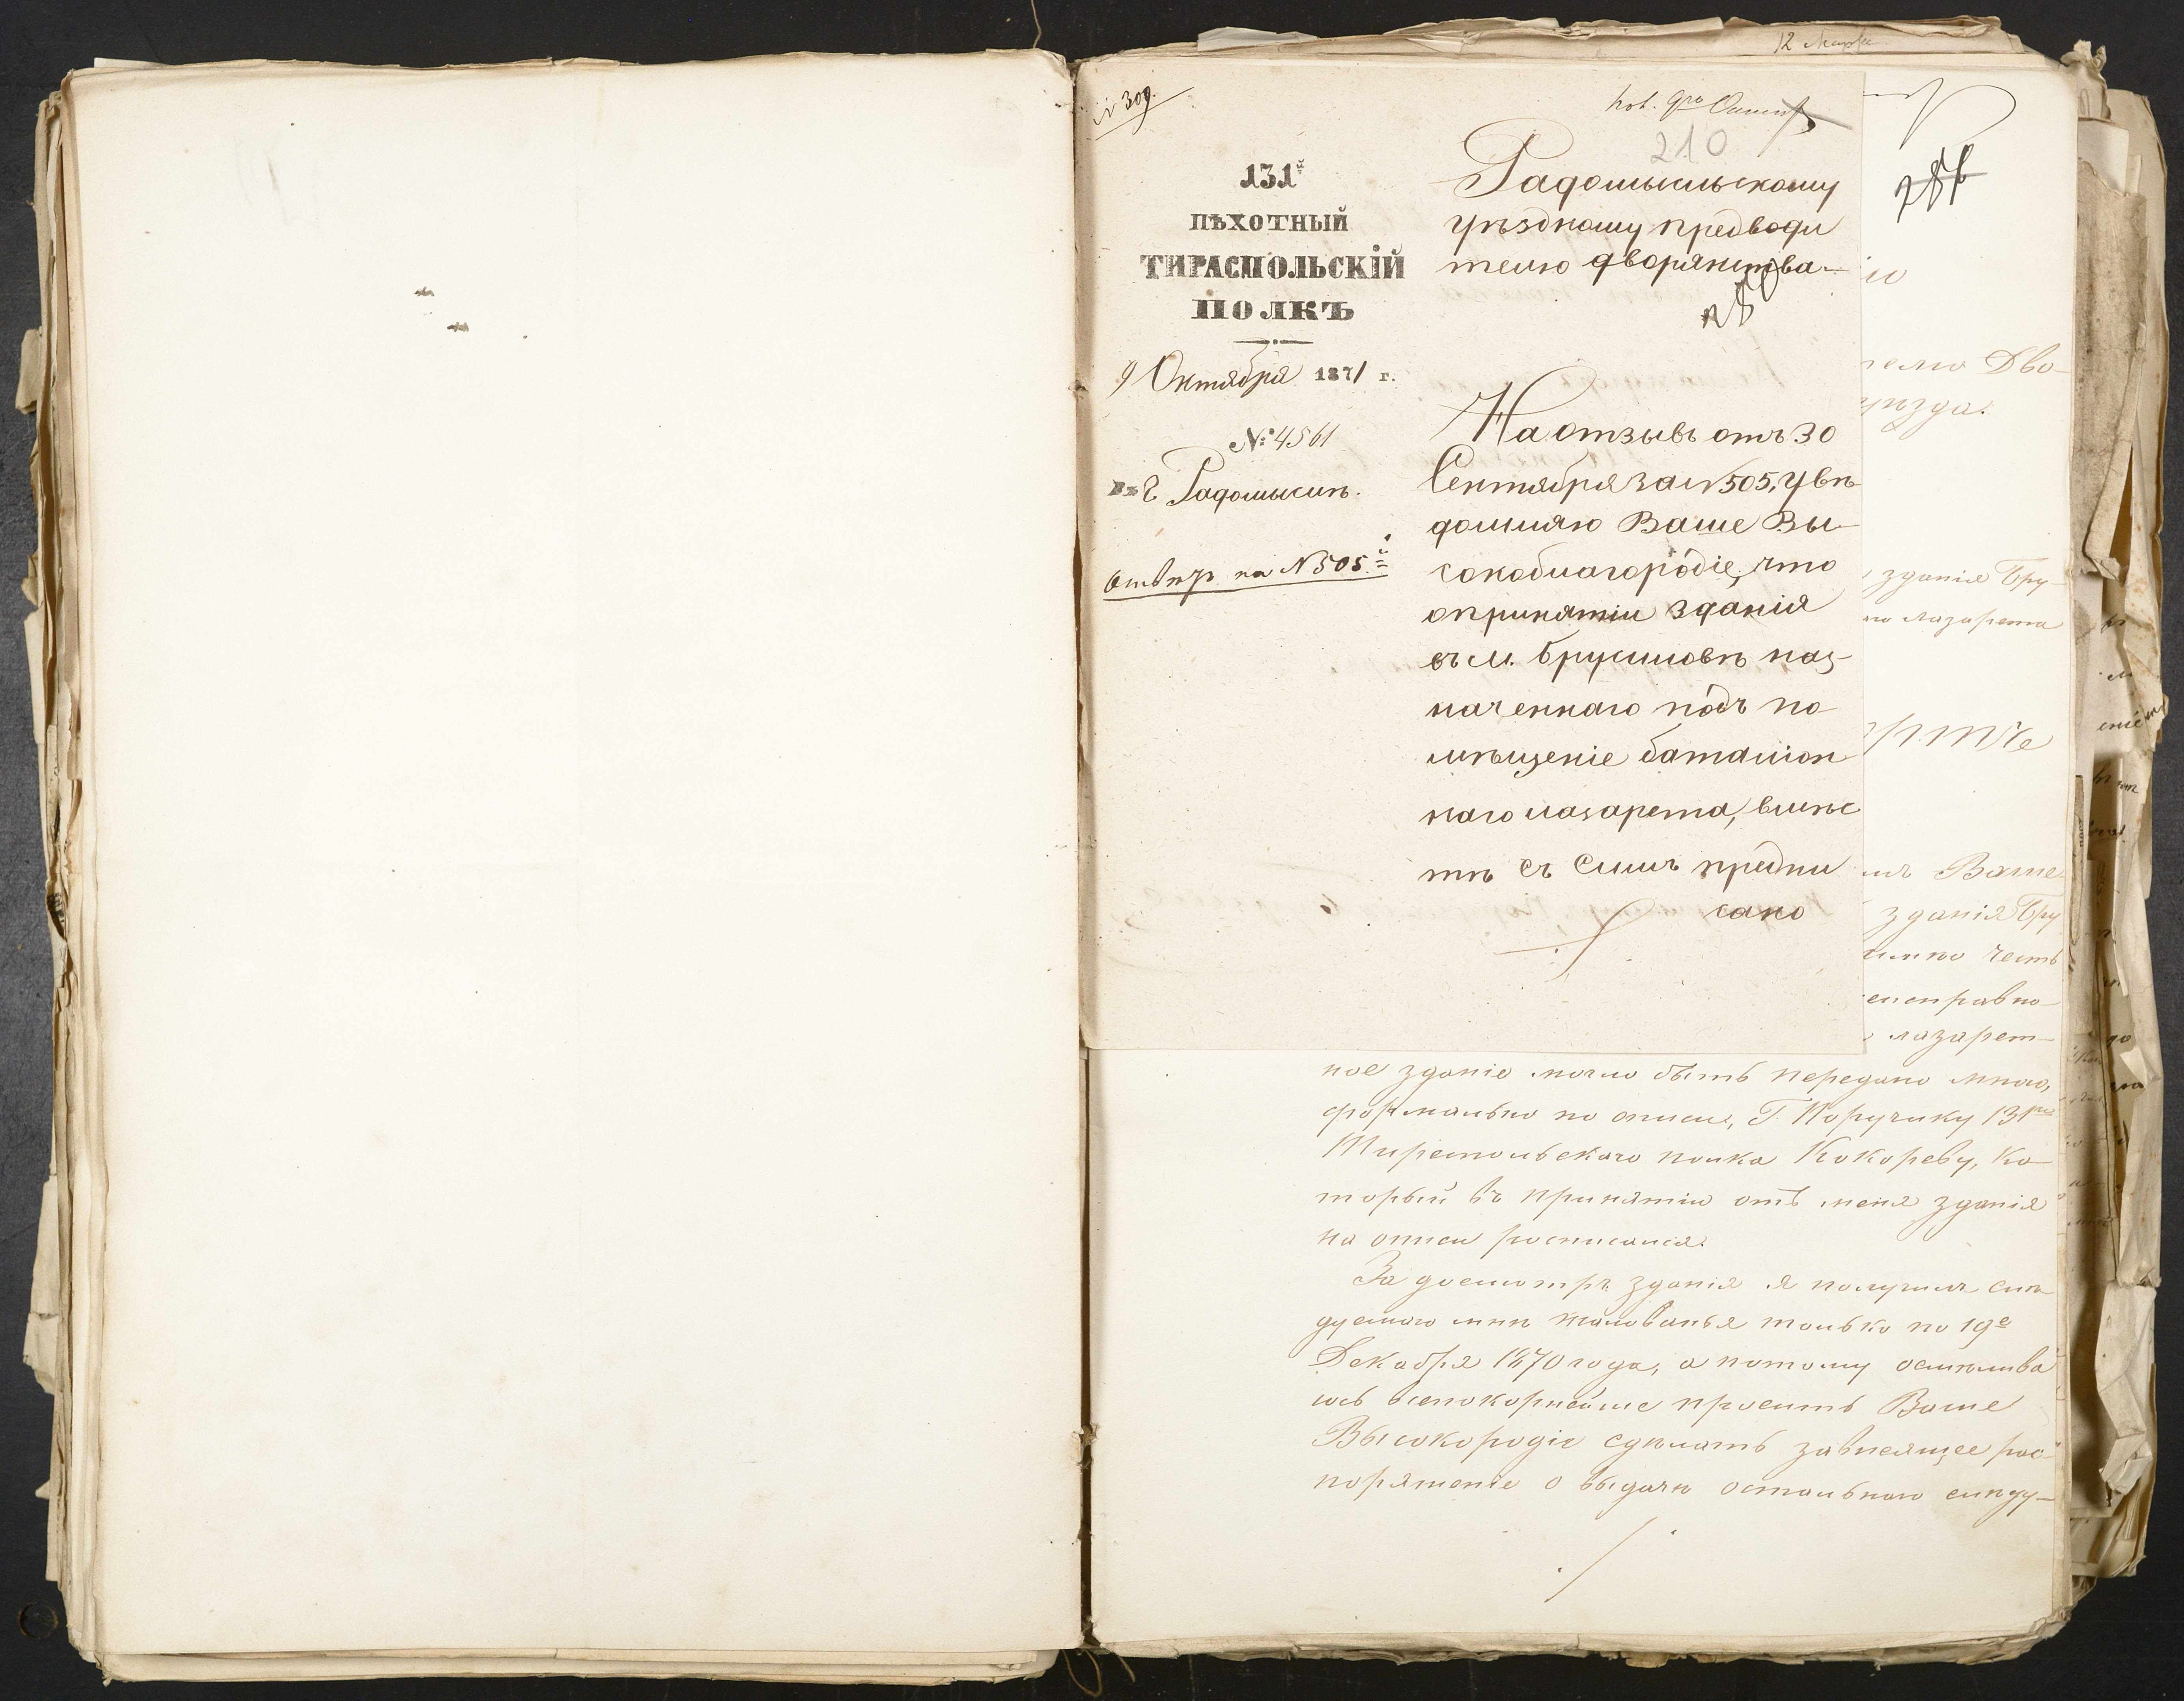 12 Марта
№ 309.
210
131й
ПѢХОТНЫЙ
ТИРАСПОЛЬСКІЙ
ПОЛКЪ
9 Октября 1871 г.
№ 4561
Въ г. Радомыслѣ.
Отвѣтъ на N 505й
Радомысльскому
уѣздному предводи
телю дворянства
На отзывъ отъ 30
Сентября за N 505, увѣ
домляю Ваше Вы-
сокоблагородіе, что
о принятіи зданія
въ м. Брусиловѣ наз-
наченнаго подъ по
мѣщеніе баталіон
наго лазарета, вмѣс
тѣ съ симъ предпи
сано
телю Дво-
уѣзда.
зданія Бру-
лазарета
Ваше
зданія Бру
честь
лазарет-
ное зданіе могло быть передано мною,
формально по описи, Г. Поручику 131го
Тираспольскаго полка Кокореву, ко-
торый въ принятіи отъ меня зданія
на описи росписался.
За досмотръ зданія я получилъ слѣ
дуемаго мнѣ жалованья только по 19е
Декабря 1870 года, а потому осмѣлива
юсь всепокорнейше просить Ваше
Высокородіе сдѣлать зависящее рас
поряженіе о выдачѣ остальнаго слѣду-